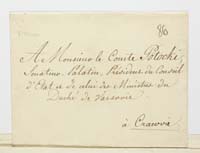 86
A Monsieur le Comte Potocki
Senateur, Palatin, Président du Conseil
d'Etat et de celui des Ministres du
Duché de Varsovie
à Cracovie